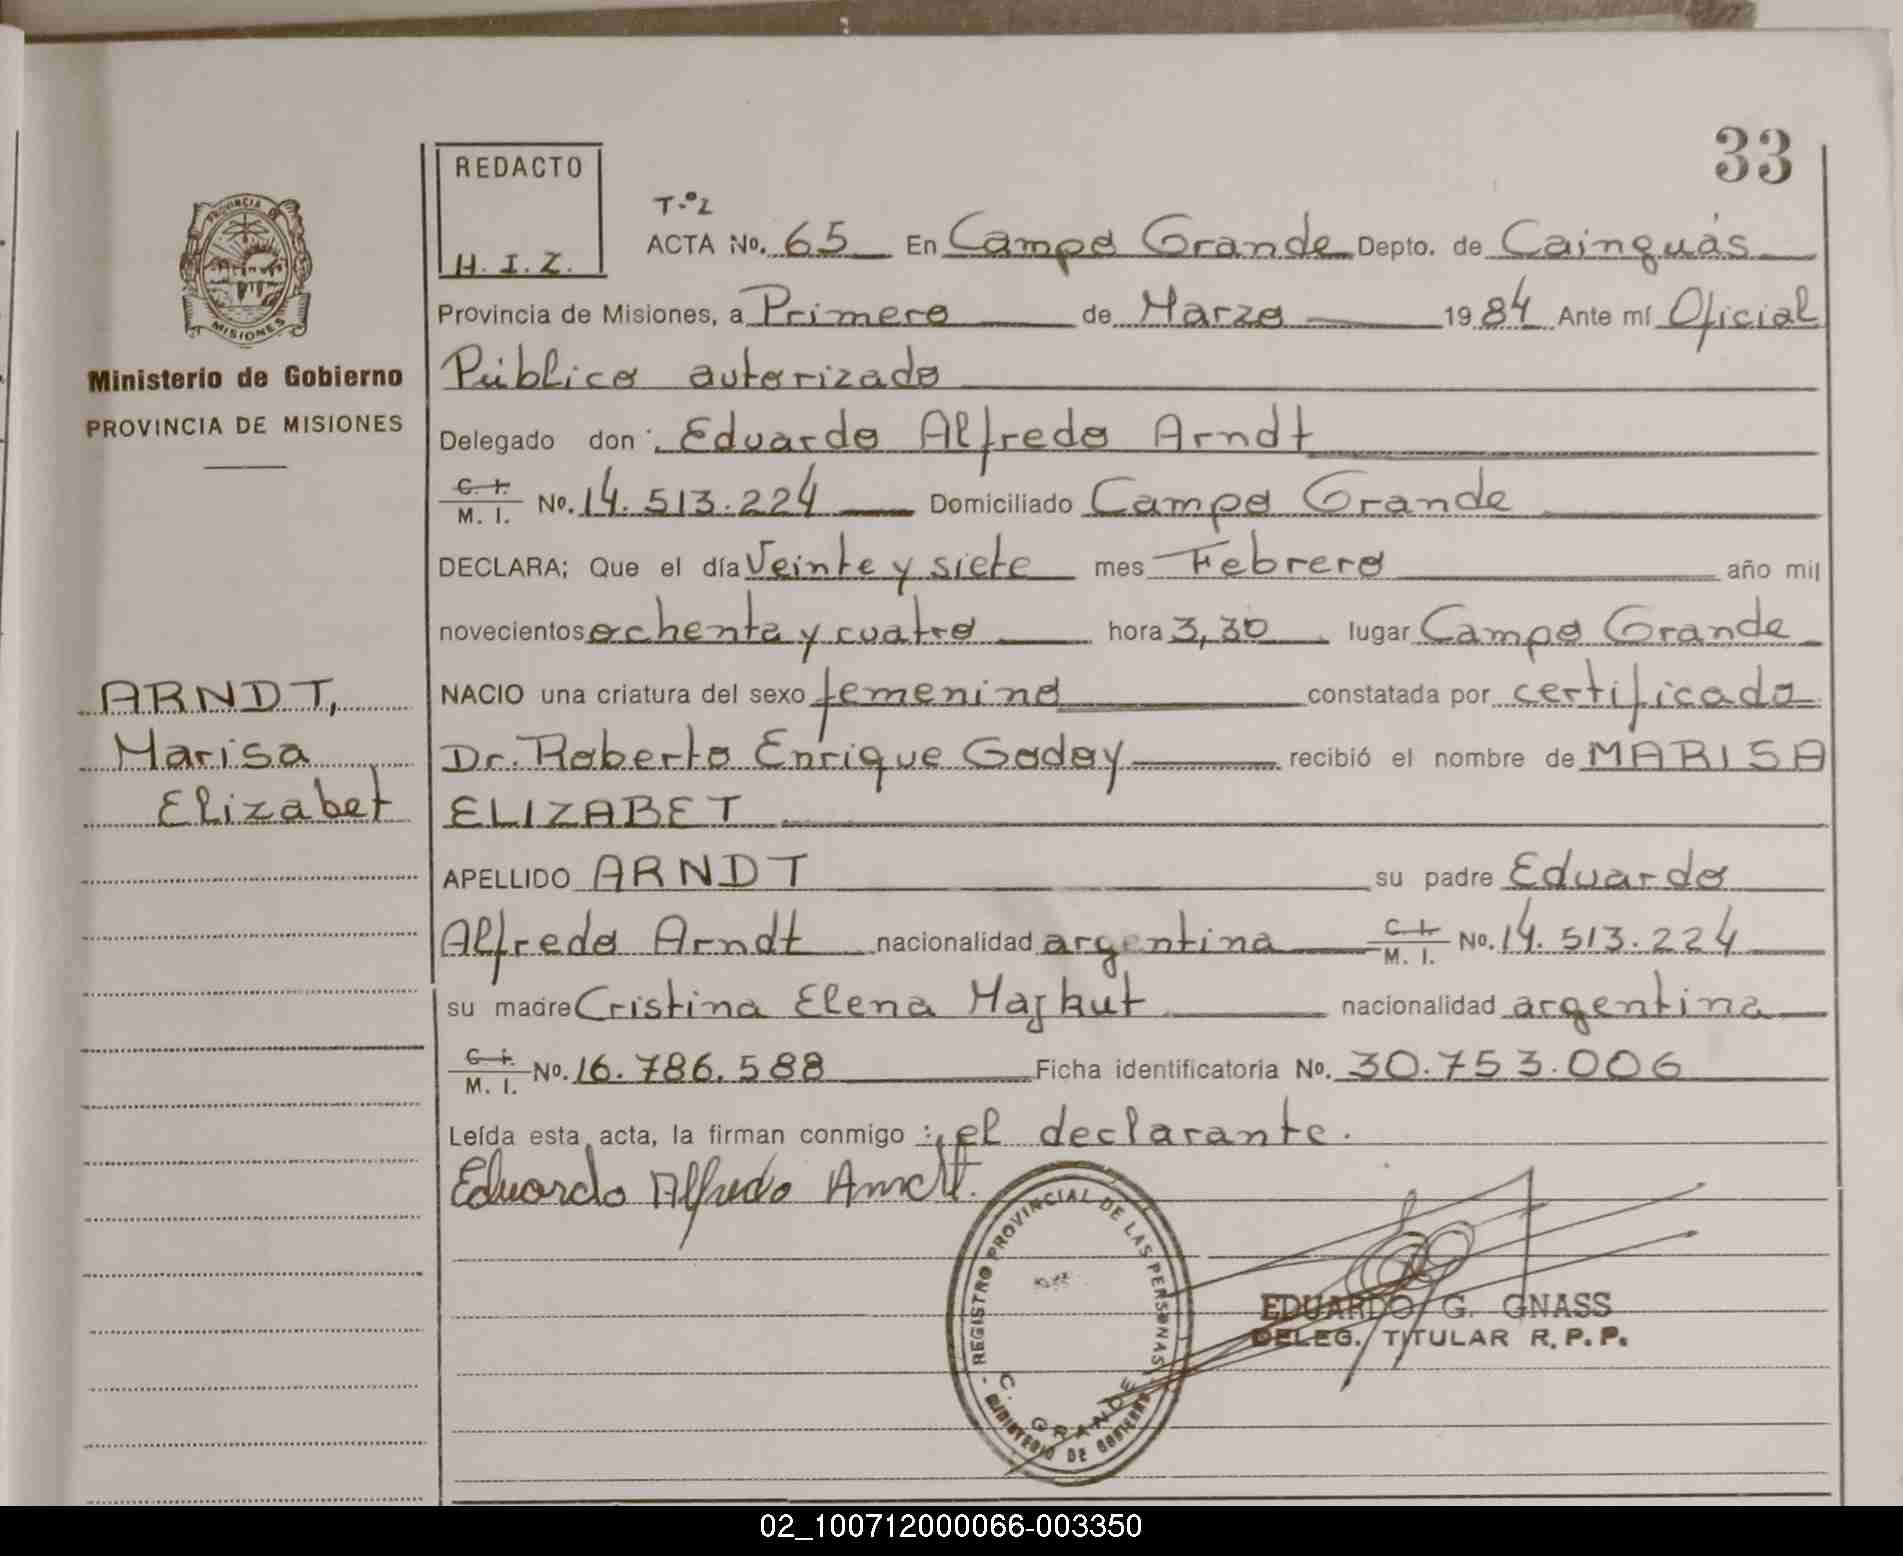 33
REDACTO
H. I. Z.
PROVINCIA DE
MISIONES
Ministerio de Gobierno
PROVINCIA DE MISIONES
T.º2
ACTA No. 65 En Campo Grande Depto. de Cainguás
Provincia de Misiones, a Primero de Marzo 1984 Ante mí Oficial
Público autorizado
Delegado don: Eduardo Alfredo Arndt
C. I. M. I. No. 14.513.224 Domiciliado Campo Grande
DECLARA; Que el día Veinte y siete mes Febrero año mil
novecientos ochenta y cuatro hora 3,30 lugar Campo Grande
NACIO una criatura del sexo femenino constatada por certificado
Dr. Roberto Enrique Godoy recibió el nombre de MARISA
ELIZABET
ARNDT,
Marisa
Elizabet
APELLIDO ARNDT su padre Eduardo
Alfredo Arndt nacionalidad argentina C. I. M. I. No. 14.513.224
su madre Cristina Elena Majkut nacionalidad argentina
C. I. M. I. No. 16.786.588 Ficha identificatoria No. 30.753.006
Leída esta acta, la firman conmigo: el declarante.
Eduardo Alfredo Arndt.
REGISTRO PROVINCIAL DE LAS PERSONAS
C. GRANDE
MINISTERIO DE GOBIERNO
EDUARDO G. GNASS
DELEG. TITULAR R. P. P.
02_100712000066-003350